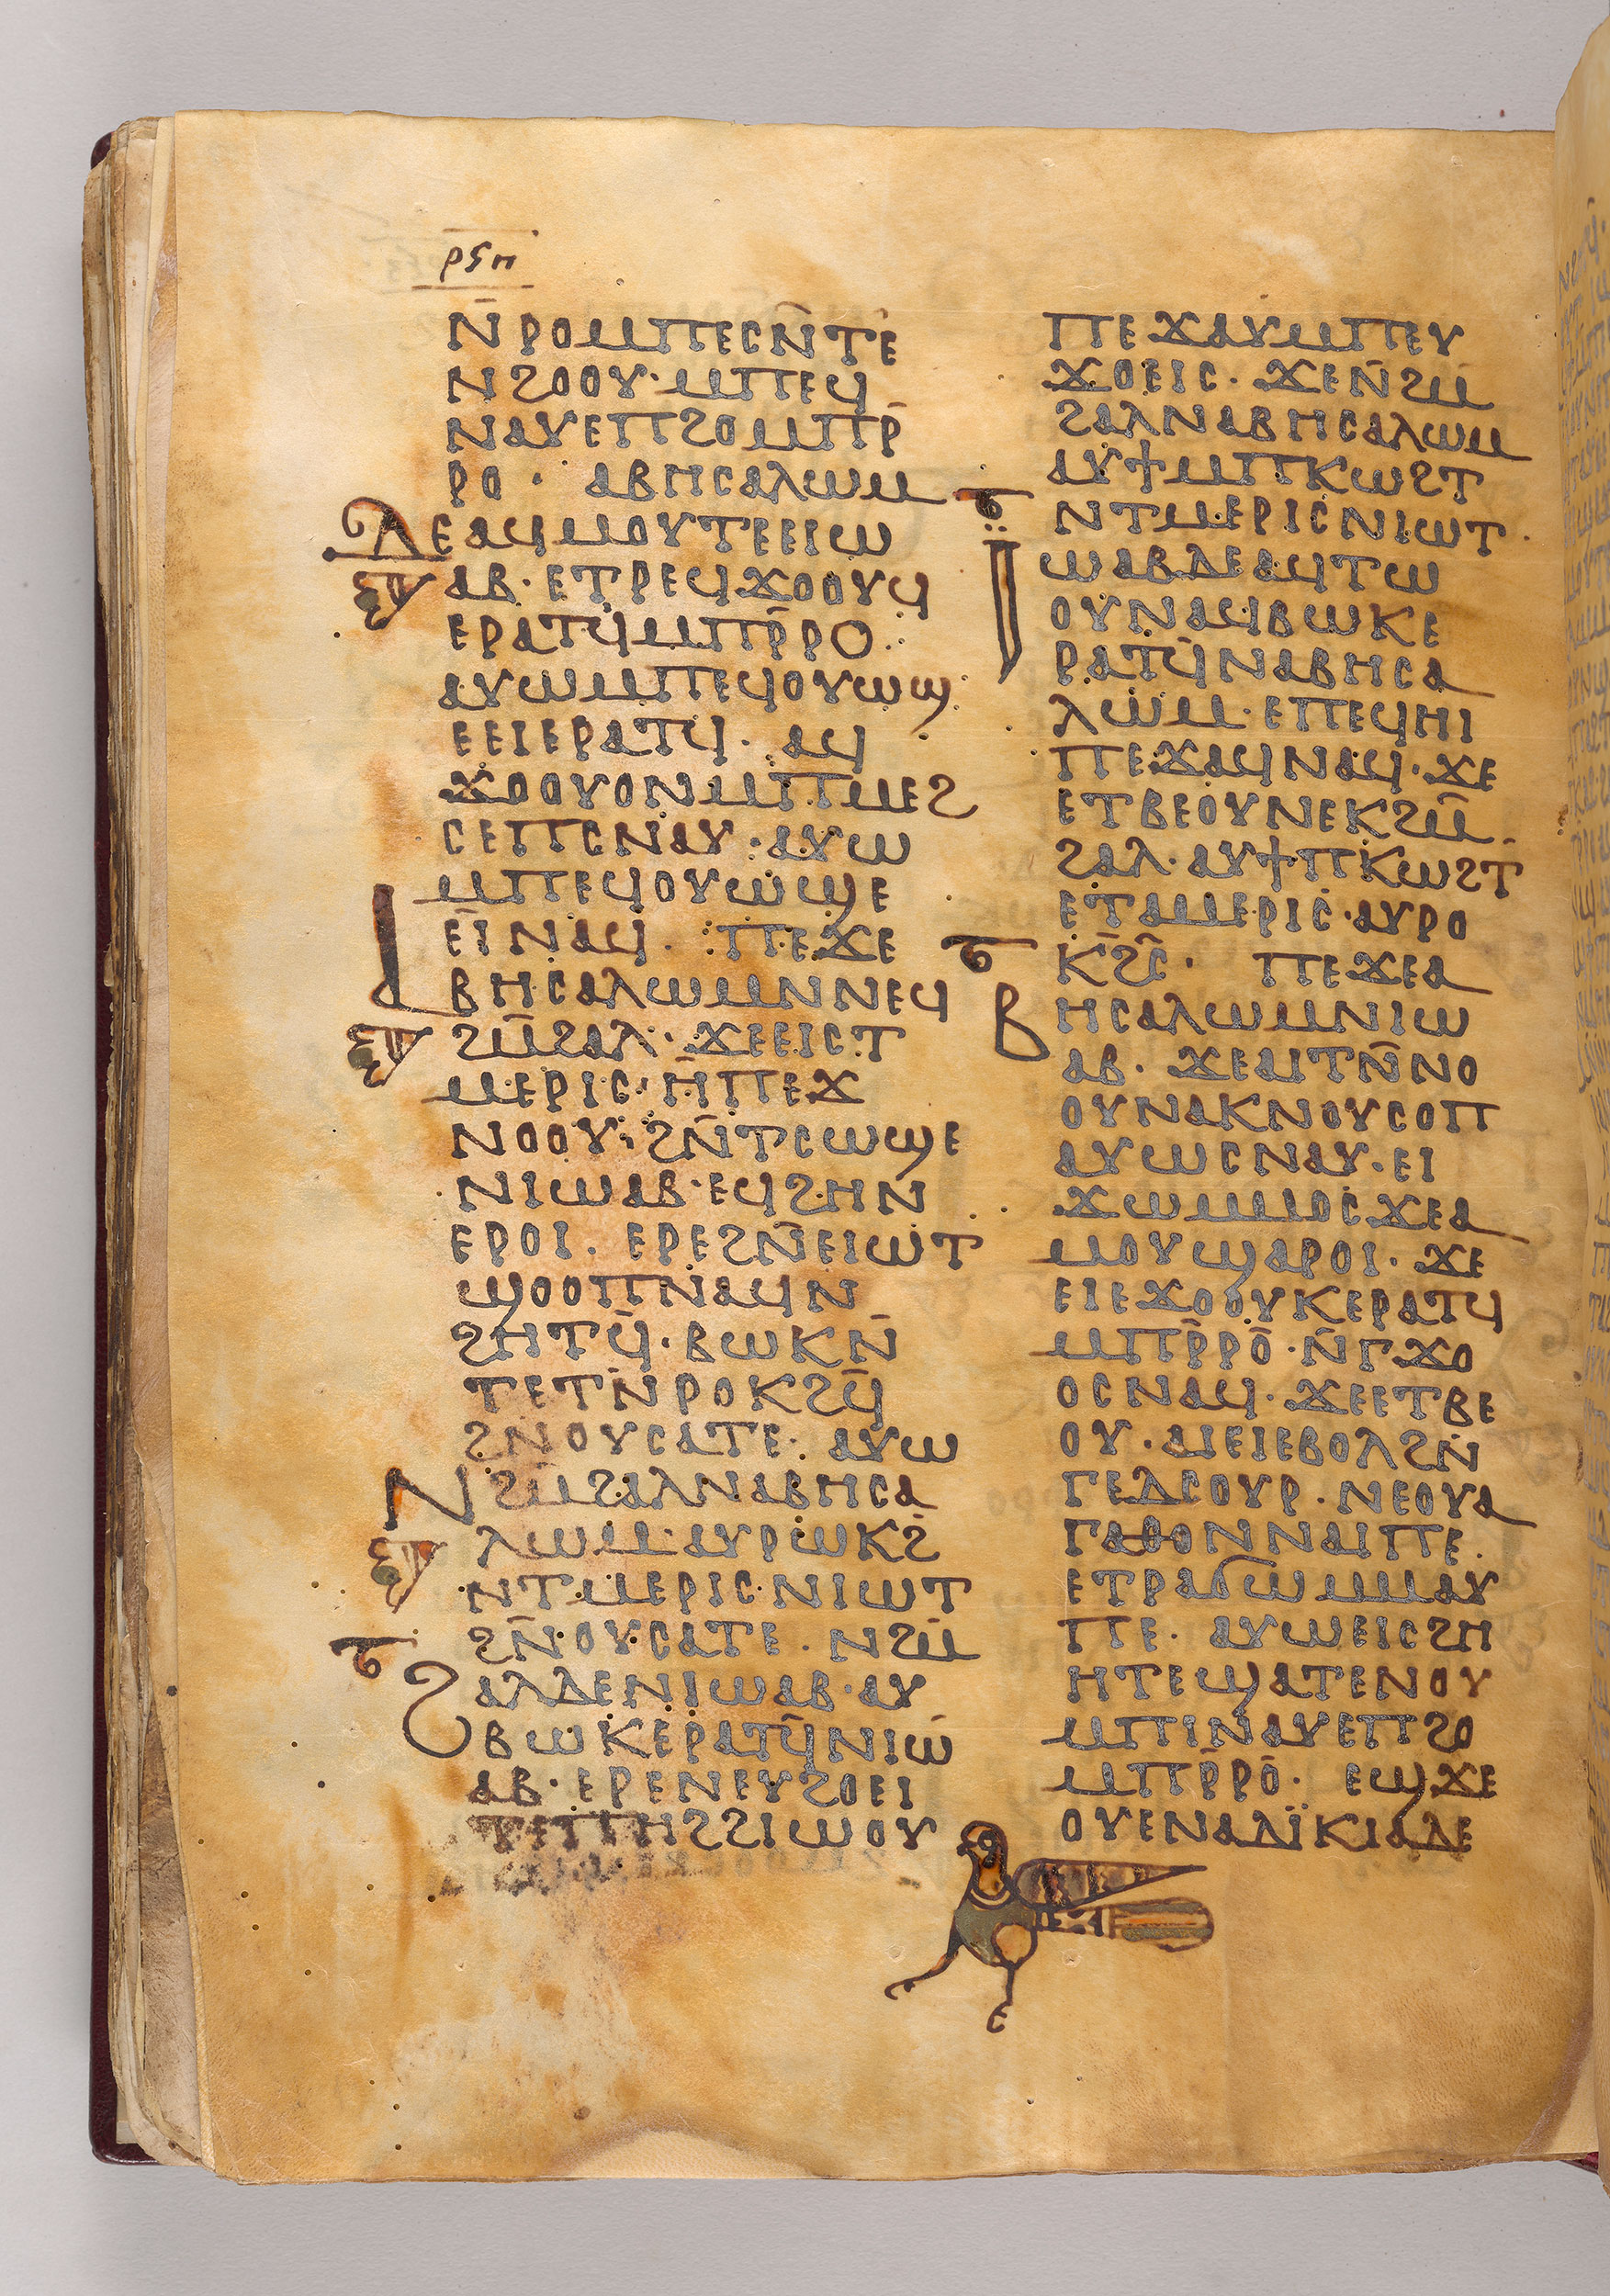 ⲣⲝⲏ
ⲛ̄ⲣⲟⲙⲡⲉⲥⲛ̄ⲧⲉ
ⲛϩⲟⲟⲩ· ⲙⲡⲉϥ
ⲛⲁⲩⲉⲡϩⲟⲙⲡⲣ̄
ⲣⲟ· ⲁⲃⲏⲥⲁⲗⲱⲙ
ⲇⲉⲁϥⲙⲟⲩⲧⲉⲉⲓⲱ
ⲁⲃ· ⲉⲧⲣⲉϥϫⲟⲟⲩϥ
ⲉⲣⲁⲧϥ̄ⲙⲡⲣ̄ⲣⲟ·
ⲁⲩⲱⲙⲡⲉϥⲟⲩⲱϣ
ⲉⲉⲓⲉⲣⲁⲧϥ̄· ⲁϥ
ϫⲟⲟⲩⲟⲛⲙⲡⲙⲉϩ
ⲥⲉⲡⲥⲛⲁⲩ· ⲁⲩⲱ
ⲙⲡⲉϥⲟⲩⲱϣⲉ
ⲉ̄ⲓⲛⲁϥ· ⲡⲉϫⲉ
ⲁⲃⲏⲥⲁⲗⲱⲙⲛⲛⲉϥ
ϩⲙ̄ϩⲁⲗ· ϫⲉⲉⲓⲥⲧ
ⲙⲉⲣⲓⲥ· ⲏ̄ⲡⲉϫ
ⲛⲟⲟⲩ· ϩⲛ̄ⲧⲥⲱϣⲉ
ⲛⲓⲱⲁⲃ· ⲉϥϩⲏⲛ
ⲉⲣⲟⲓ· ⲉⲣⲉϩⲛ̄ⲉⲓⲱⲧ
ϣⲟⲟⲡⲛⲁϥⲛ
ϩⲏⲧϥ̄· ⲃⲱⲕⲛ̄
ⲧⲉⲧⲛ̄ⲣⲟⲕϩϥ̄
ϩⲛ̄ⲟⲩⲥⲁⲧⲉ· ⲁⲩⲱ
ⲛϩⲙϩⲁⲗⲛⲁⲃⲏⲥⲁ
ⲗⲱⲙ· ⲁⲩⲣⲱⲕϩ̄
ⲛⲧⲙⲉⲣⲓⲥ· ⲛⲓⲱⲧ
ϩⲛ̄ⲟⲩⲥⲁⲧⲉ· ⲛϩⲙ̄
ϩⲁⲗⲇⲉⲛⲓⲱⲁⲃ· ⲁⲩ
ⲃⲱⲕⲉⲣⲁⲧϥ̄ⲛⲓⲱ
ⲁⲃ· ⲉⲣⲉⲛⲉⲩϩⲟⲉⲓ
ⲧⲉⲡⲏϩϩⲓⲱⲟⲩ
ⲡⲉϫⲁⲩⲙⲡⲉⲩ
ϫⲟⲉⲓⲥ· ϫⲉⲛ̄ϩⲙ̄
ϩⲁⲗⲛⲁⲃⲏⲥⲁⲗⲱⲙ
ⲁⲩϯⲙⲡⲕⲱϩⲧ
ⲛⲧⲙⲉⲣⲓⲥⲛⲓⲱⲧ·
ⲓⲱⲁⲃⲇⲉⲁϥⲧⲱ
ⲟⲩⲛⲁϥⲃⲱⲕⲉ
ⲣⲁⲧϥ̄ⲛⲁⲃⲏⲥⲁ
ⲗⲱⲙ· ⲉⲡⲉϥⲏⲓ
ⲡⲉϫⲁϥⲛⲁϥ· ϫⲉ
ⲉⲧⲃⲉⲟⲩⲛⲉⲕϩⲙ̄
ϩⲁⲗ· ⲁⲩϯⲡⲕⲱϩⲧ
ⲉⲧⲁⲙⲉⲣⲓⲥ· ⲁⲩⲣⲟ
ⲕϩⲥ̄· ⲡⲉϫⲉⲁ
ⲃⲏⲥⲁⲗⲱⲙⲛⲓⲱ
ⲁⲃ· ϫⲉⲁⲓⲧⲛ̄ⲛⲟ
ⲟⲩⲛⲁⲕⲛⲟⲩⲥⲟⲡ
ⲁⲩⲱⲥⲛⲁⲩ· ⲉⲓ
ϫⲱⲙⲙⲟⲥϫⲉⲁ
ⲙⲟⲩϣⲁⲣⲟⲓ· ϫⲉ
ⲉⲓⲉϫⲟⲟⲩⲕⲉⲣⲁⲧϥ
ⲙⲡⲣ̄ⲣⲟ· ⲛ̄ⲅϫⲟ
ⲟⲥⲛⲁϥ· ϫⲉⲉⲧⲃⲉ
ⲟⲩ· ⲁⲓⲉⲓⲉⲃⲟⲗϩⲛ̄
ⲅⲉⲇⲥⲟⲩⲣ· ⲛⲉⲟⲩⲁ
ⲅⲁⲑⲟⲛⲛⲁⲓⲡⲉ
ⲉⲧⲣⲁϭⲱⲙⲙⲁⲩ
ⲡⲉ· ⲁⲩⲱⲉⲓⲥϩⲏ
ⲏⲧⲉϣⲁⲧⲉⲛⲟⲩ
ⲙⲡⲓⲛⲁⲩⲉⲡϩⲟ
ⲙⲡⲣ̄ⲣⲟ· ⲉϣϫⲉ
ⲟⲩⲉⲛⲁⲇⲓ̈ⲕⲓⲁⲇⲉ